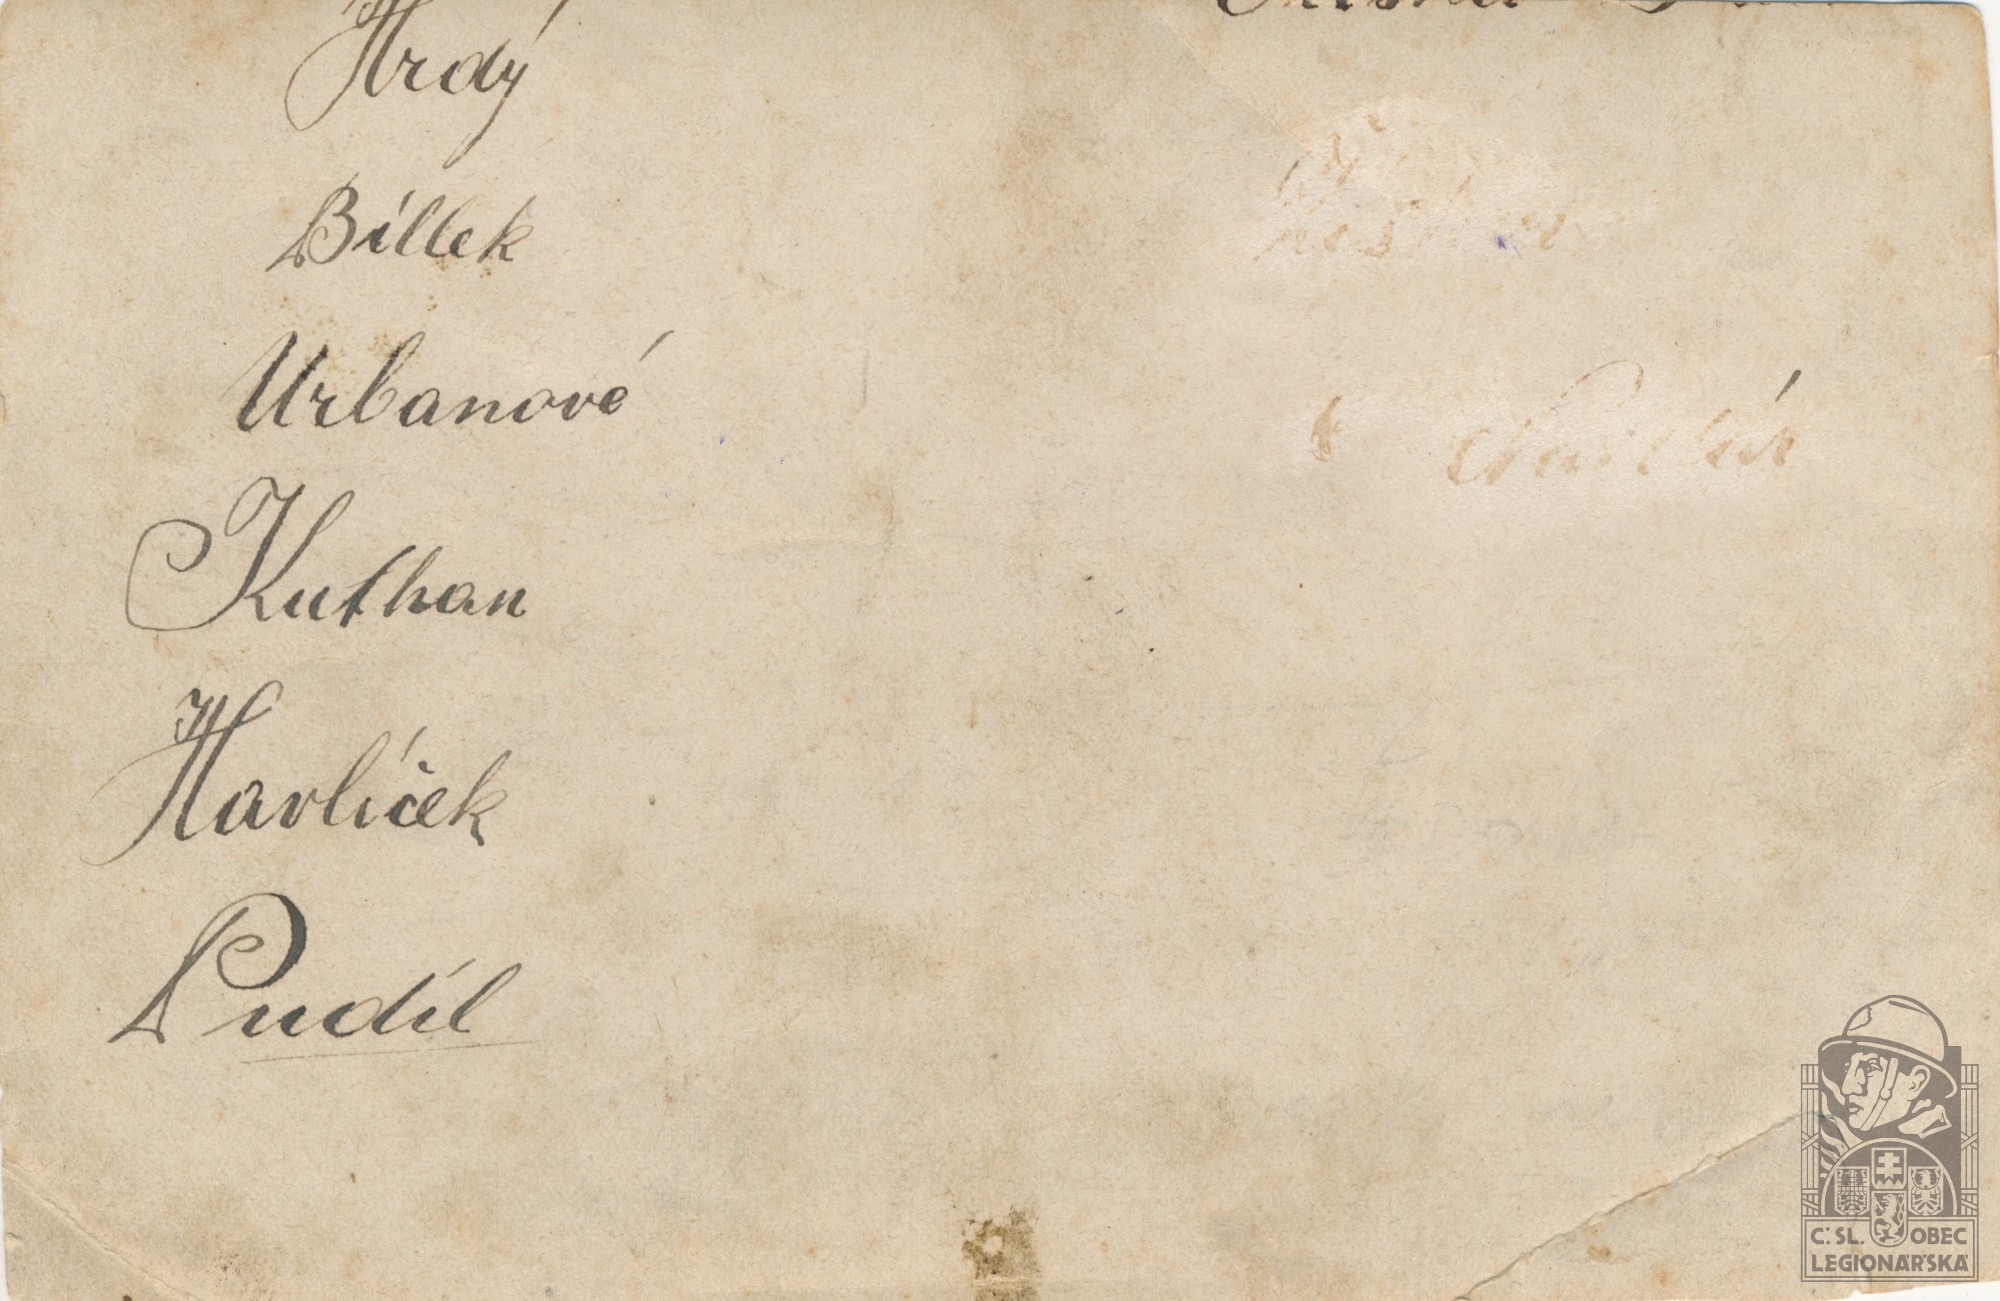 Hrdý
Bíllek
Urbanové
Kuthan
Havlíček
Pudíl
Č.SL. OBEC
LEGIONÁŘSKÁ